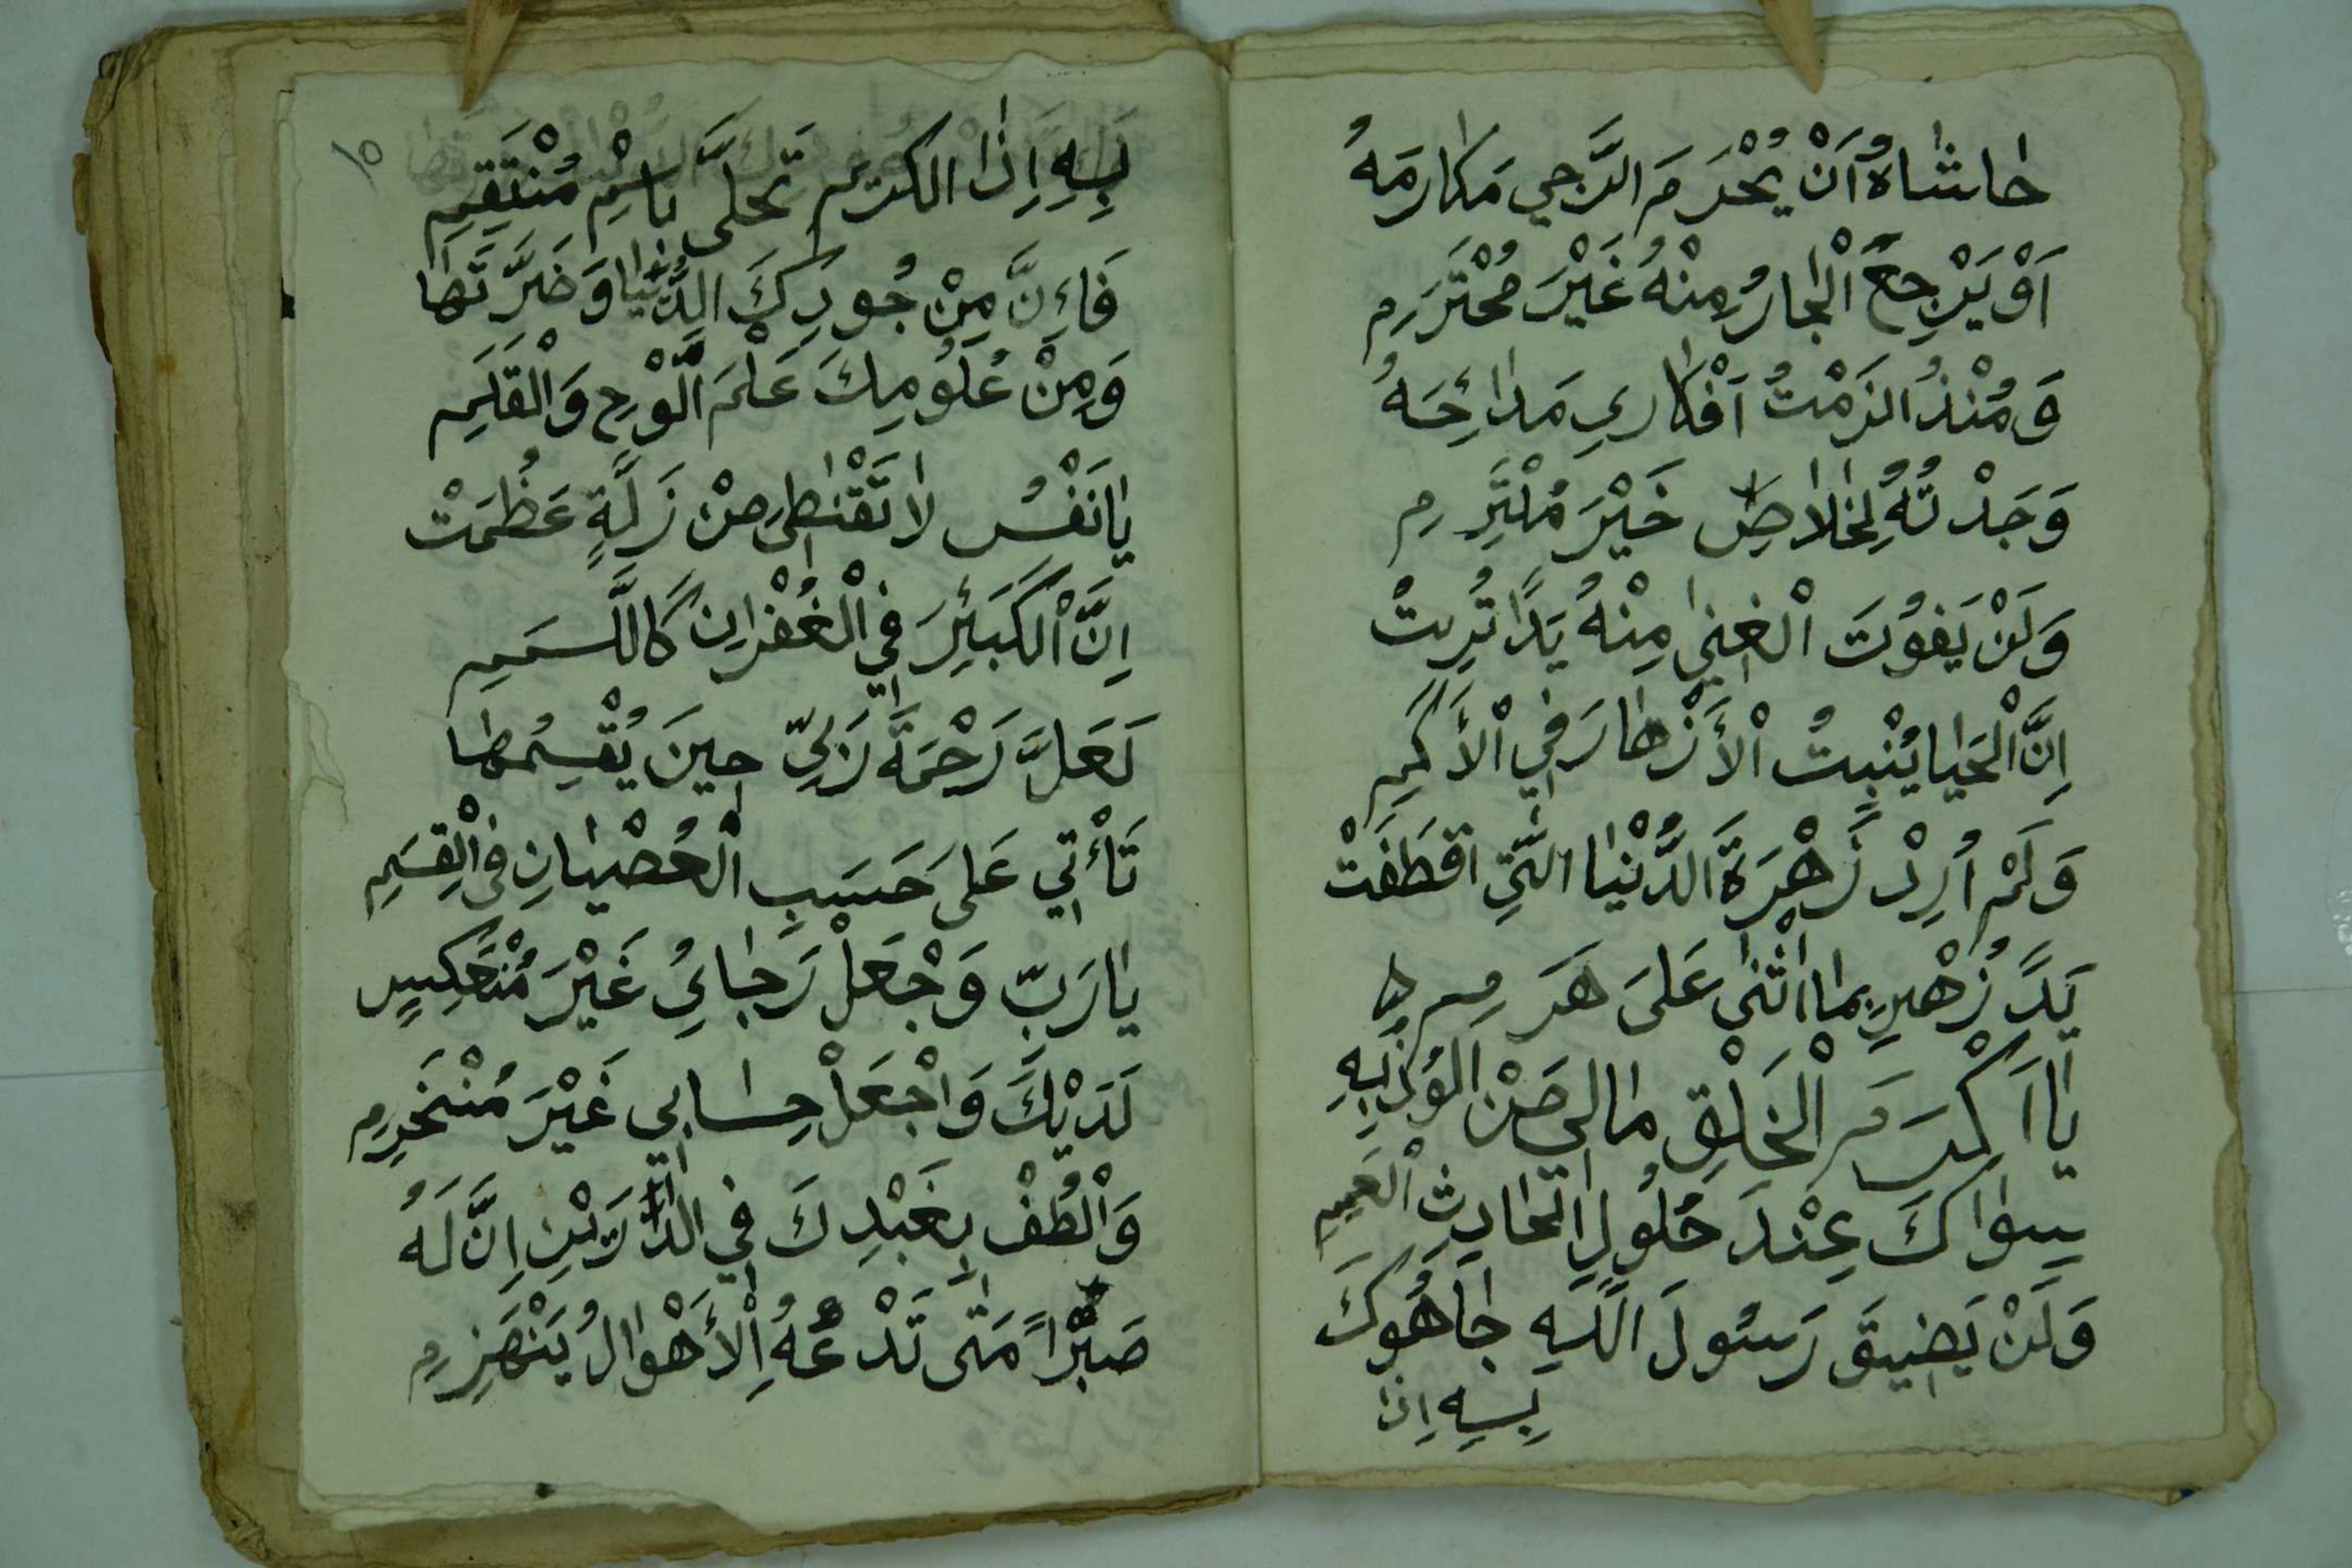 حَاشَاهُ اَنْ يُحْرَمَ الرَّجِي مَكَارِمَهُ
اَوْ يَرْجِحَ الْجَارُ مِنْهُ غَيْرَ مُحْتَرَمِ
وَمُنْذُ الزَمْتُ اَفْكَارِي مَدَائِحَهُ
وَجَدْتُهُ لِخَلَاصِ خَيْرَ مُلْتَزِمِ
وَلَنْ يَفُوْتَ الْغِنٰي مِنْهُ يَدًا تُرِبَتْ
اِنَّ الْحَيَا يُنْبِتُ الْأَزْهَارَ فِي الْأَكَمِ
وَلَمْ اُرِدْ زَهْرَةَ الدُّنْيَا الَّتِي اقْطَفَتْ
يَدً زُهْيرِ بِمَا اَثْنٰى عَلىَ هَرَمِ
يَا اَكْرَمَ الْخَلْقِ مَالِي مَنْ اَلُوْذُ بِهِ
سِوَاكَ عِنْدَ حُلُولِ الْحَادِثِ الْعَمِمِ
وَلَنْ يَضِيقَ رَسُولَ اللّٰهِ جَاهُوكَ
بِهِ اِذَا
١٥
بِهِ اِذَا الكَرِيم تَحَلَّى بِاسْمِ مُنْتَقِمِ
فَاِنَّ مِنْ جُودِكَ الدُّنْيَا وَضَرَّتَهَا
وَمِنْ عُلُومِكَ عَلْمَ الَّوْحِ وَالْقَلَمِ
يَا نَفْسُ لَا تَقْنَطِى مِنْ زَلَّةٍ عَظُمَتْ
اِنَّ الْكَبَئِرَ فِي الْغُفْرَانِ كَالَّمَمِ
لَعَلَّ رَحْمَةَ رَبِّي حِينَ يُقْسِمُهَا
تَأْتِي عَلىَ حَسَبِ الْعُصْيَانِ فِى الْقِسَمِ
يَارَبّ وَجْعَلْ رَجَائِي غَيْرَ مُنْعَكِسٍ
لَدَيْكَ وَاْجْعَلْ حِسَابِي غَيْرَ مُنْخَرِمِ
وَاْلْطُفْ بِعَبْدِكَ فِي الدَّارَيْنِ اِنَّ لَهُ
صَبْرًا مَتٰى تَدْعُهُ الْأَهْوَالُ يَنْهَزِمِ